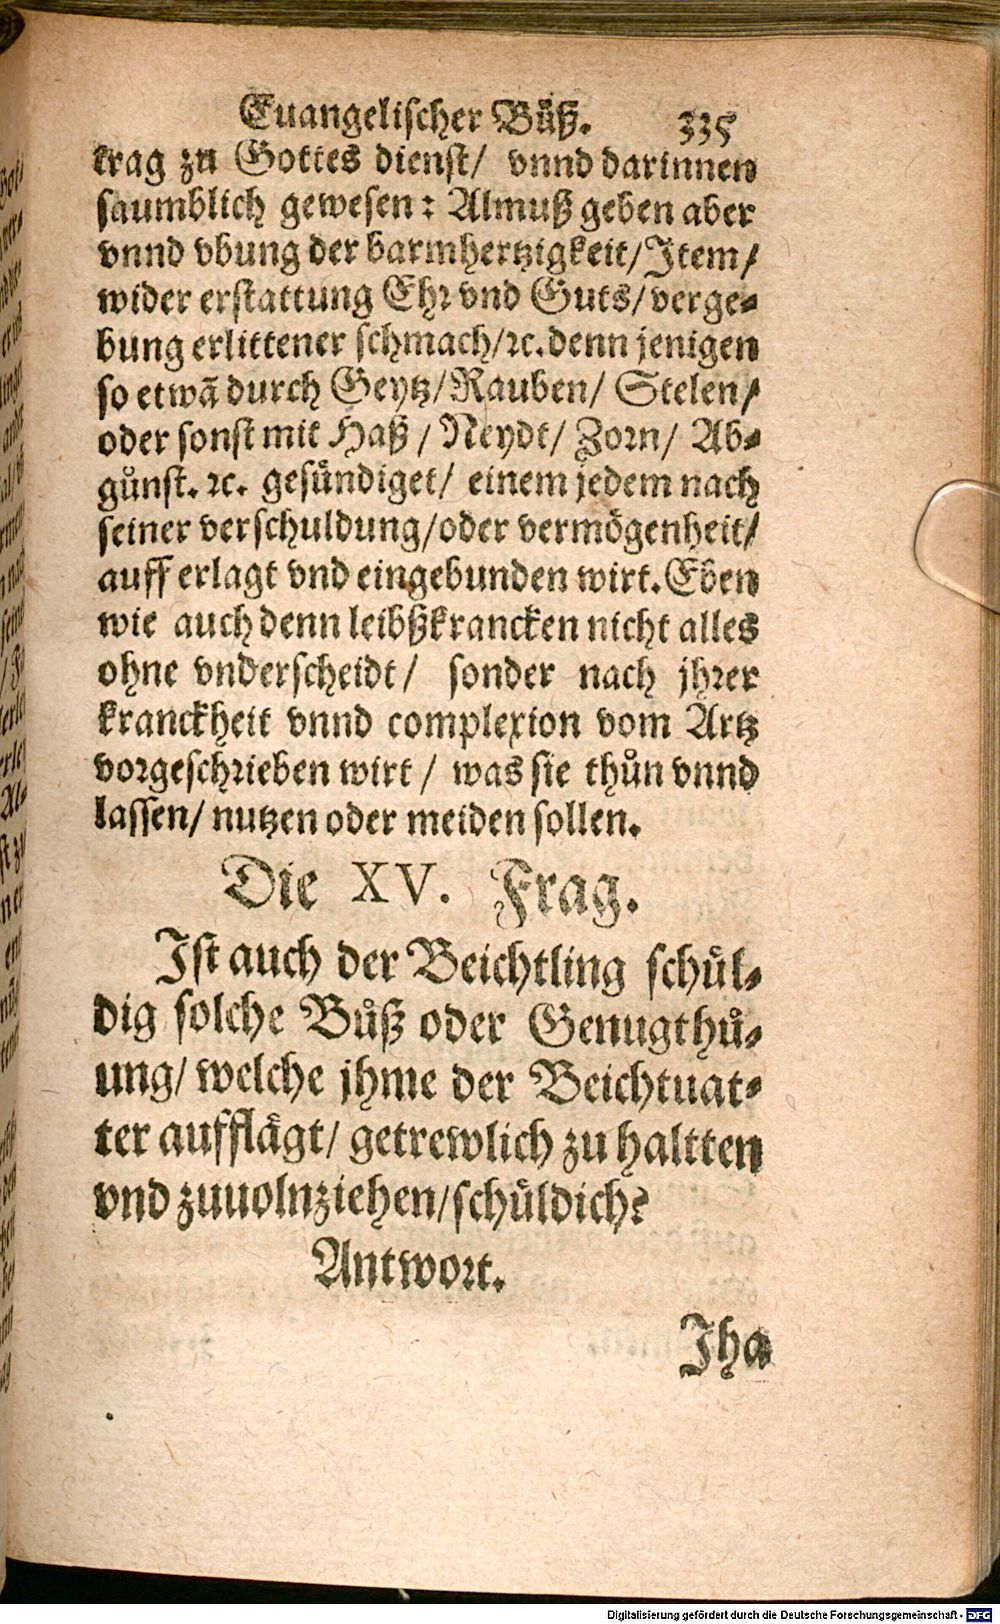 Euangelischer Bůß. 335
trag zu Gottes dienst/ vnnd darinnen
saumblich gewesen: Almuß geben aber
vnnd vbung der barmhertzigkeit/Item/
wider erstattung Ehr vnd Guts/verge-
bung erlittener schmach/ꝛc. denn jenigen
so etwã durch Geytz/Rauben/ Stelen/
oder sonst mit Haß/ Neydt/ Zorn/ Ab-
gůnst. ꝛc. gesündiget/ einem jedem nach
seiner verschuldung/oder vermögenheit/
auff erlagt vnd eingebunden wirt. Eben
wie auch denn leibßkrancken nicht alles
ohne vnderscheidt/ sonder nach jhrer
kranckheit vnnd complexion vom Artz
vorgeschrieben wirt/ was sie thůn vnnd
lassen/ nutzen oder meiden sollen.
Die XV. Frag.
Ist auch der Beichtling schül-
dig solche Bůß oder Genugthů-
ung/ welche jhme der Beichtuat-
ter aufflägt/ getrewlich zu haltten
vnd zuuolnziehen/schüldich?
Antwort.
Jha
Digitalisierung gefördert durch die Deutsche Forschungsgemeinschaft - DFG